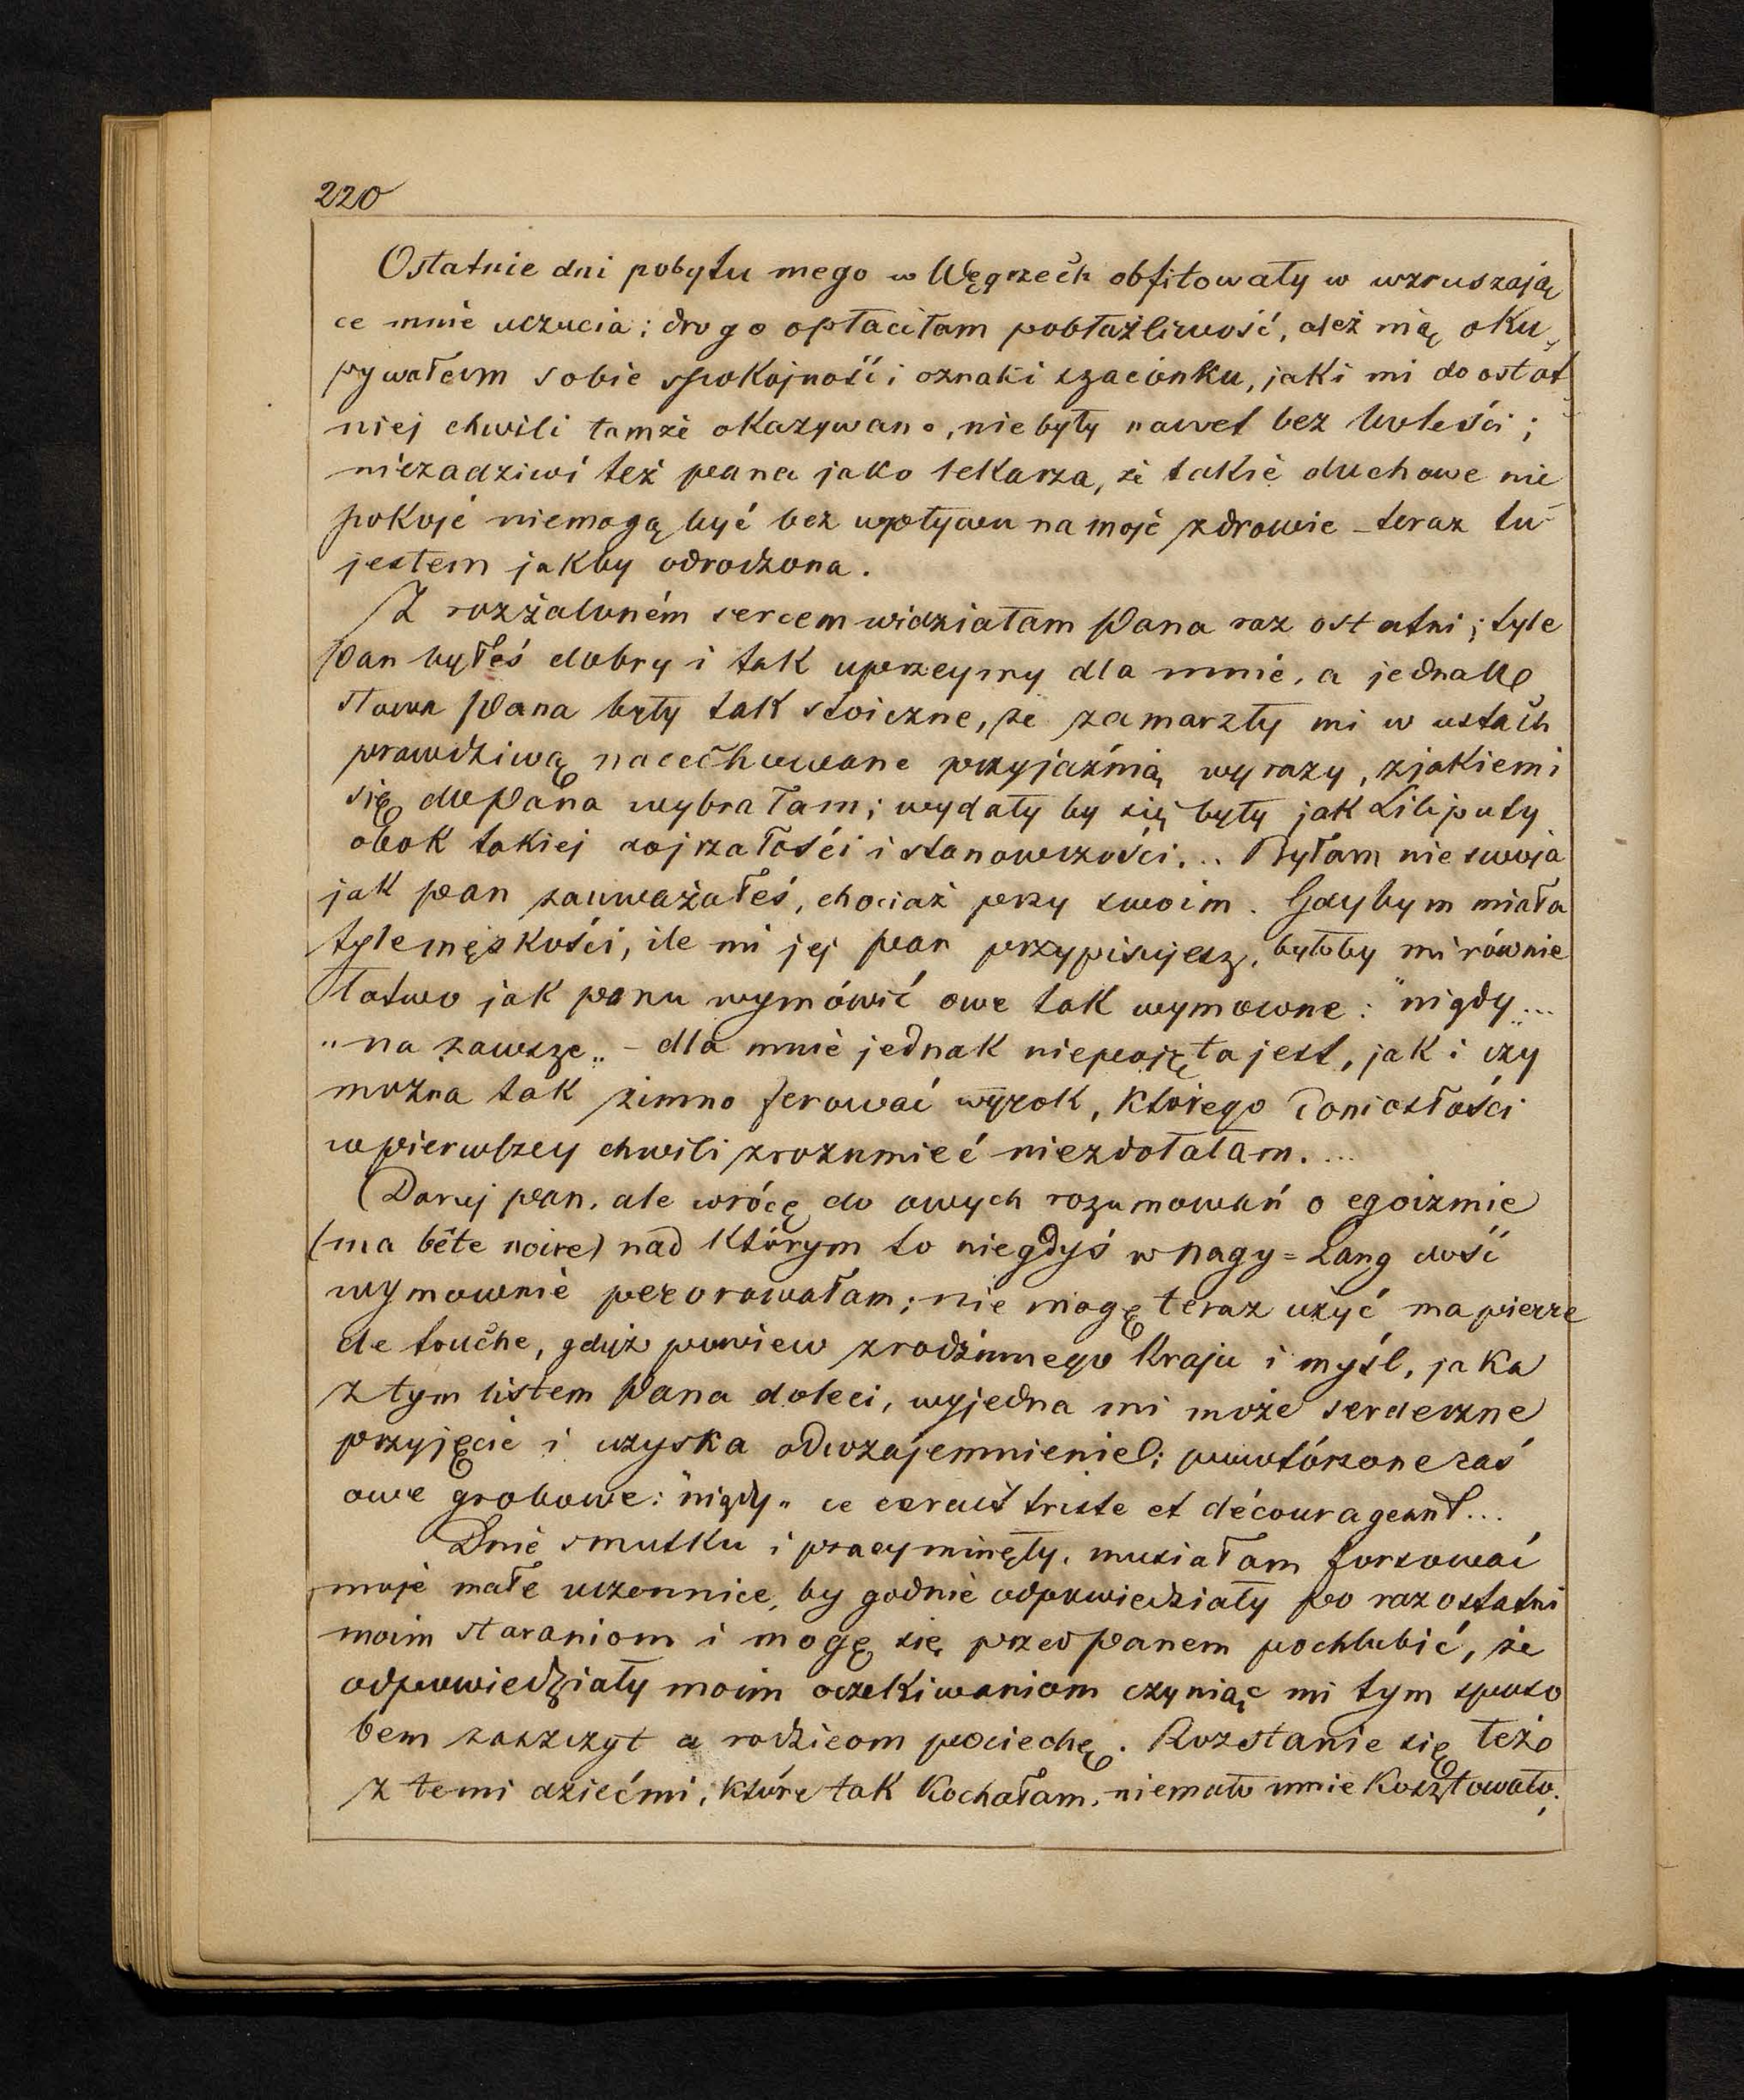 220
Ostatnie dni pobytu mego w Węgrzech obfitowały w wzruszają
ce mnie uczucia; drogo opłaciłam pobłażliwość, ależ nią oku-
pywałem sobie spokojność i oznaki szacunku, jaki mi do ostat
niej chwili tamże okazywano, niebyły nawet bez boleści;
niezadziwi też pana jako lekarza, że takie duchowe nie
pokoje niemogą być bez wpływu na moje zdrowie – teraz tu
jestem jakby odrodzona.
Z rozżaloném sercem widziałam Pana raz ostatni; tyle
Pan byłeś dobry i tak uprzeymy dla mnie, a jednak
słowa Pana były tak stoiczne, że zamarzły mi w ustach
prawdziwą nacechowane przyjaźnią wyrazy, z jakiemi
się do Pana wybrałam; wydały by się były jak Liliputy
obok takiej dojrzałości i stanowczości... Byłam nie swoja
jak pan zauważałeś, chociaż przy swoim. Gdybym miała
tyle męskości, ile mi jej pan przypisujesz, byłoby mi równie
łatwo jak panu wymówić owe tak wymowne: "nigdy"...
"na zawsze" – dla mnie jednak niepojęta jest, jak i czy
można tak zimno ferować wyrok, którego doniosłości
w pierwszey chwili zrozumieć niezdołałam....
Daruj pan, ale wrócę do owych rozumowań o egoizmie
(ma bête noire) nad którym to niegdyś w Nagy=Lang dość
wymownie perorowałam; nie mogę teraz użyć ma pierre
de touche, gdyż powiew z rodzinnego kraju i myśl, jaka
z tym listem Pana doleci, wyjedna mi może serdeczne
przyjęcie i uzyska odwzajemnienie; powtórzone zaś
owe grobowe: "nigdy" ce serait triste et décourageant...
Dnie smutku i pracy minęły, musiałam forsować
moje małe uczennice, by godnie odpowiedziały po raz ostatni
moim staraniom i mogę się przed Panem pochlubić, że
odpowiedziały moim oczekiwaniom czyniąc mi tym sposo
bem zaszczyt a rodzicom pociechę. Rozstanie się też
z temi dziećmi, które tak kochałam, niemało mnie kosztowało.